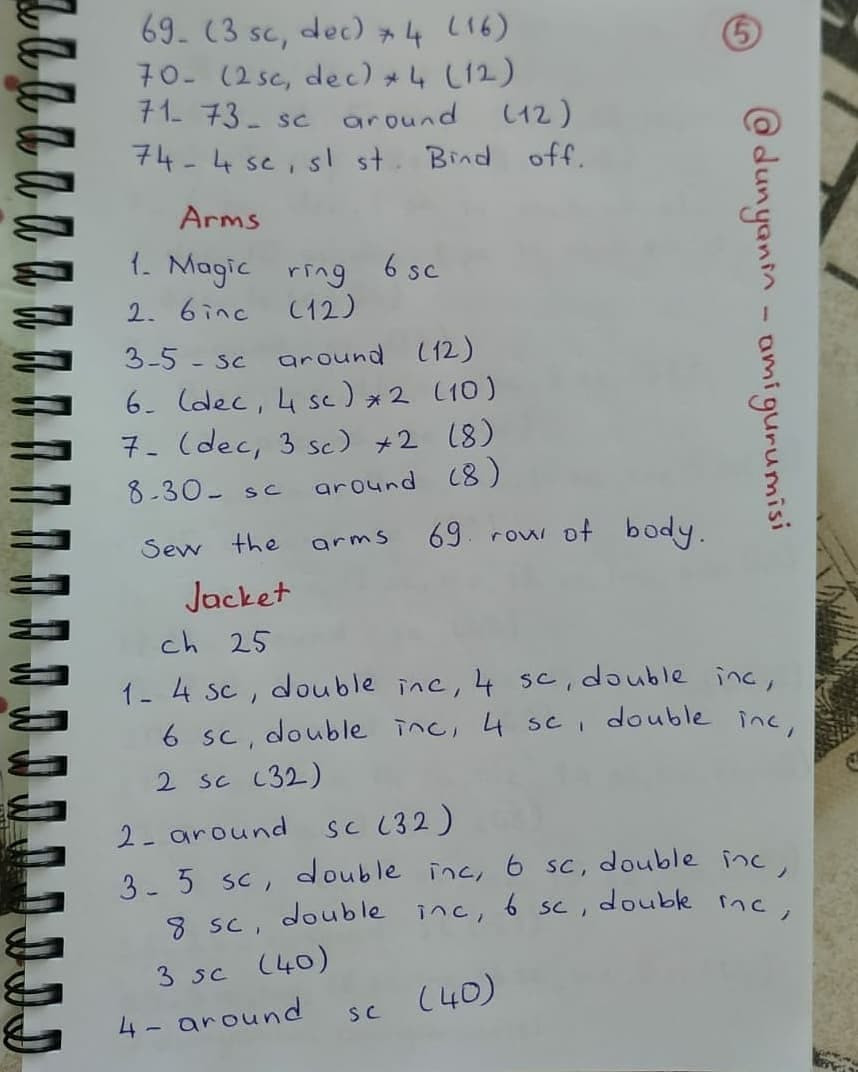 69- (3 sc, dec) * 4 (16)
70- (2 sc, dec) * 4 (12)
71- 73- sc around (12)
74- 4 sc, sl st. Bind off.
Arms
1. Magic ring 6 sc
2. 6 inc (12)
3-5 - sc around (12)
6- (dec, 4 sc) * 2 (10)
7- (dec, 3 sc) * 2 (8)
8-30- sc around (8)
Sew the arms 69. row of body.
Jacket
ch 25
1- 4 sc, double inc, 4 sc, double inc,
6 sc, double inc, 4 sc, double inc,
2 sc (32)
2- around sc (32)
3- 5 sc, double inc, 6 sc, double inc,
8 sc, double inc, 6 sc, double inc,
3 sc (40)
4- around sc (40)
5
@dunyanin - amigurumisi